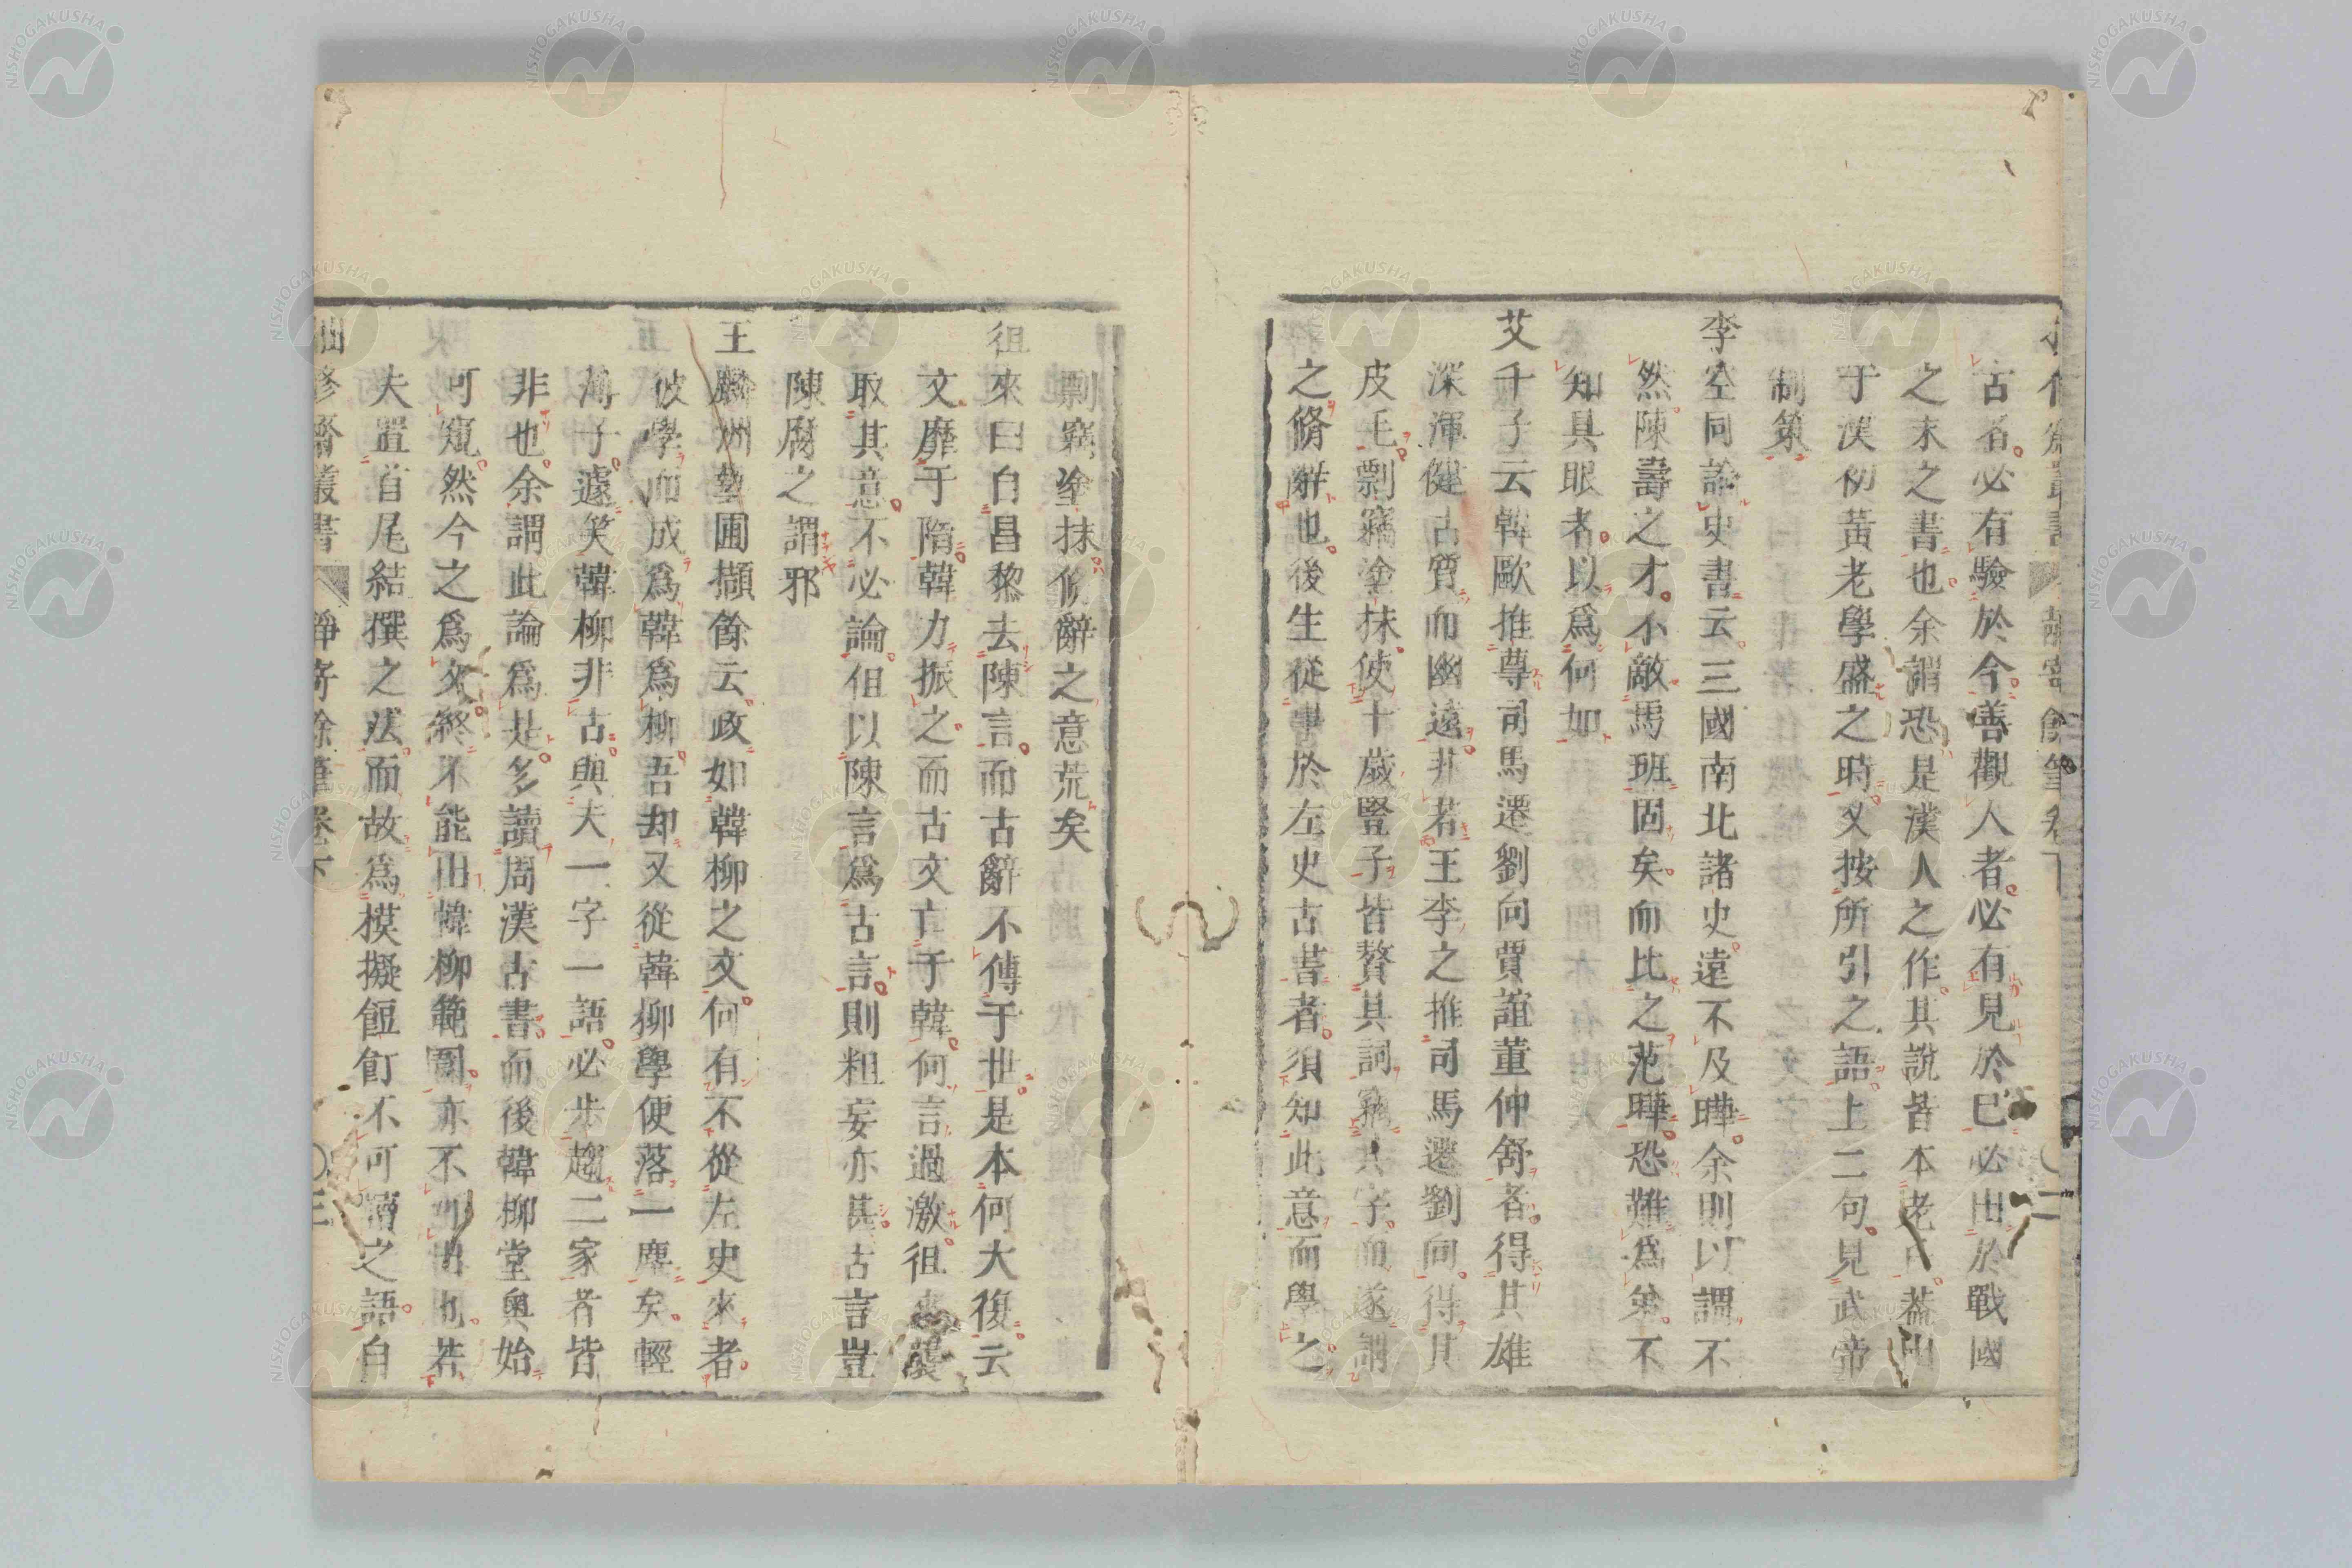 古者必有驗於今善觀人者必有見於已必由於戰國
之末之書也余謂恐是漢人之作其說皆本老氏蓋出
于漢初黃老學盛之時又按所引之語上二句見武帝
制策
李空同論史書云三國南北諸史遠不及曄余則以謂不
然陳壽之才不敵馬班固矣而比之范曄恐難爲弟不
知具眼者以爲何如
艾千子云韓歐推尊司馬遷劉向賈誼董仲舒者得其雄
深渾健古質而幽遠非若王李之推司馬遷劉向得其
皮毛剽竊塗抹使十歲豎子皆贅其詞竊其字而遂謂
之脩辭也後生從事於左史古書者須知此意而學之
剽竊塗抹脩辭之意荒矣
徂來曰自昌黎去陳言而古辭不傳于世是本何大復云
文靡于隋韓力振之而古文亡于韓何言過激徂來襲
取其意不必論但以陳言爲古言則粗妄亦甚古言豈
陳腐之謂邪
王麟洲藝圃擷餘云政如韓柳之文何有不從左史來者
彼學而成爲韓爲柳吾却又從韓柳學便落一塵矣輕
薄子遽笑韓柳非古與夫一字一語必步趨二家者皆
非也余謂此論爲是多讀周漢古書而後韓柳堂奥始
可窺然今之爲文終不能由韓柳範圍亦不可出也若
夫置首尾結撰之法而故爲模擬餖飣不可讀之語自
修齋叢書 靜寄餘筆卷下 〇三